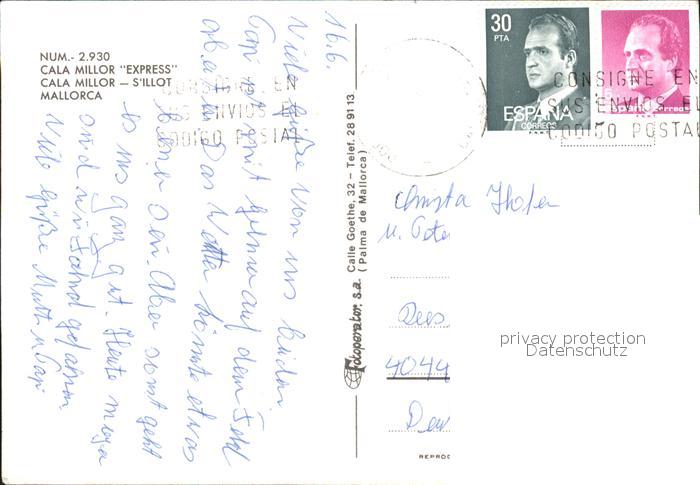 NUM.- 2.930
CALA MILLOR "EXPRESS"
CALA MILLOR – S'ILLOT
MALLORCA
16.6.
Viele Grüße von uns beiden.
Toni ist mit auf dem Feld
aber das Wetter könnte etwas
besser sein. Aber sonst geht
es uns ganz gut. Heute morgen
sind wir gefahren.
Viele Grüße Mutti u. Papi
Fotoperator, s.a. Calle Goethe, 32 – Telef. 28 91 13
(Palma de Mallorca)
30
PTA
ESPAÑA
CORREOS
España correos
CONSIGNE EN
SUS ENVIOS EL
CODIGO POSTAL
CONSIGNE EN
SUS ENVIOS EL
CODIGO POSTAL
Christa
u. Pete
4044
REPROD
privacy protection
Datenschutz